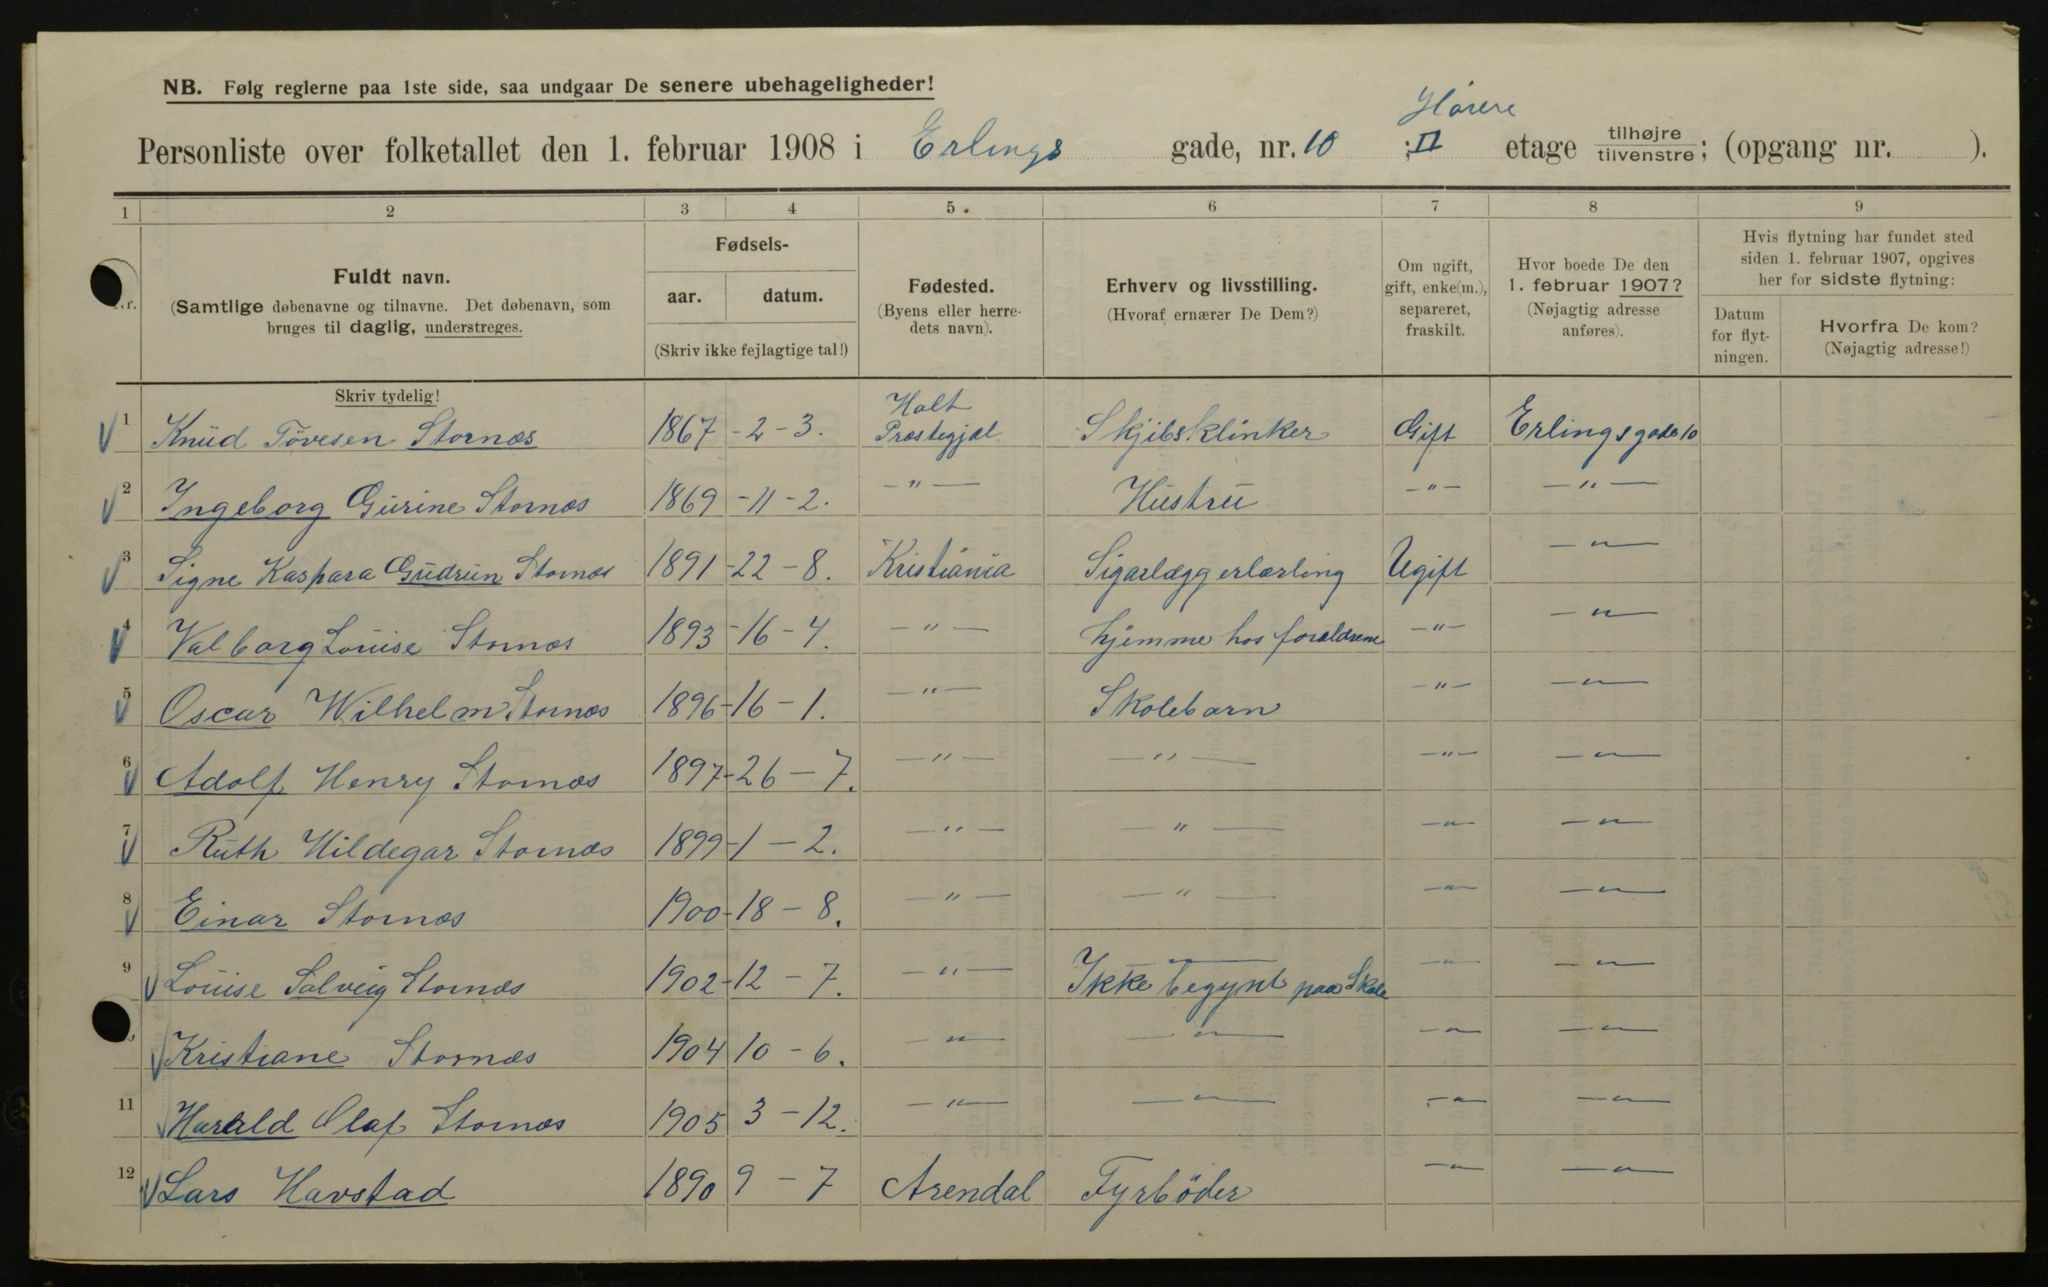 NB. Følg reglerne paa 1ste side, saa undgaar De senere ubehageligheder!
Personliste over folketallet den 1. februar 1908 i Erlings gade, nr. 10 ; II etage tilhøjre tilvenstre; (opgang nr. ).
1 2 3 4 5. 6 7 8 9
Nr.
Fuldt navn.
(Samtlige døbenavne og tilnavne. Det døbenavn, som
bruges til daglig, understreges.
Skriv tydelig!
Fødsels-
aar. datum.
(Skriv ikke fejlagtige tal!)
Fødested.
(Byens eller herre-
dets navn).
Erhverv og livsstilling.
(Hvoraf ernærer De Dem?)
Om ugift,
gift, enke(m.),
separeret,
fraskilt.
Hvor boede De den
1. februar 1907?
(Nøjagtig adresse
anføres).
Hvis flytning har fundet sted
siden 1. februar 1907, opgives
her for sidste flytning:
Datum
for flyt-
ningen.
Hvorfra De kom?
(Nøjagtig adresse!)
1 Knud Tövesen Stornæs 1867 - 2 - 3. Holt Præstegjæl. Skjibsklinker Gift Erlingsgade 10
2 Ingeborg Gurine Stornæs 1869 - 11 - 2. — " — Hustru — " — — " —
3 Signe Kaspara Gudrun Stornæs 1891 - 22 - 8. Kristiania Sigarlæggerlærling Ugift — " —
4 Valborg Louise Stornæs 1893 - 16 - 4. — " — hjemme hos forældrene — " — — " —
5 Oscar Wilhelm Stornæs 1896 - 16 - 1. — " — Skolebarn — " — — " —
6 Adolf Henry Stornæs 1897 - 26 - 7. — " — — " — — " — — " —
7 Ruth Hildegar Stornæs 1899 - 1 - 2. — " — — " — — " — — " —
8 Einar Stornæs 1900 - 18 - 8. — " — — " — — " — — " —
9 Louise Solveig Stornæs 1902 - 12 - 7. — " — Ikke begynt paa Skole — " — — " —
Kristiane Stornæs 1904 10 - 6. — " — — " — — " — — " —
11 Harald Olaf Stornæs 1905 3 - 12. — " — — " — — " — — " —
12 Lars Havstad 1890 9 - 7 Arendal Fyrböder — " — — " —